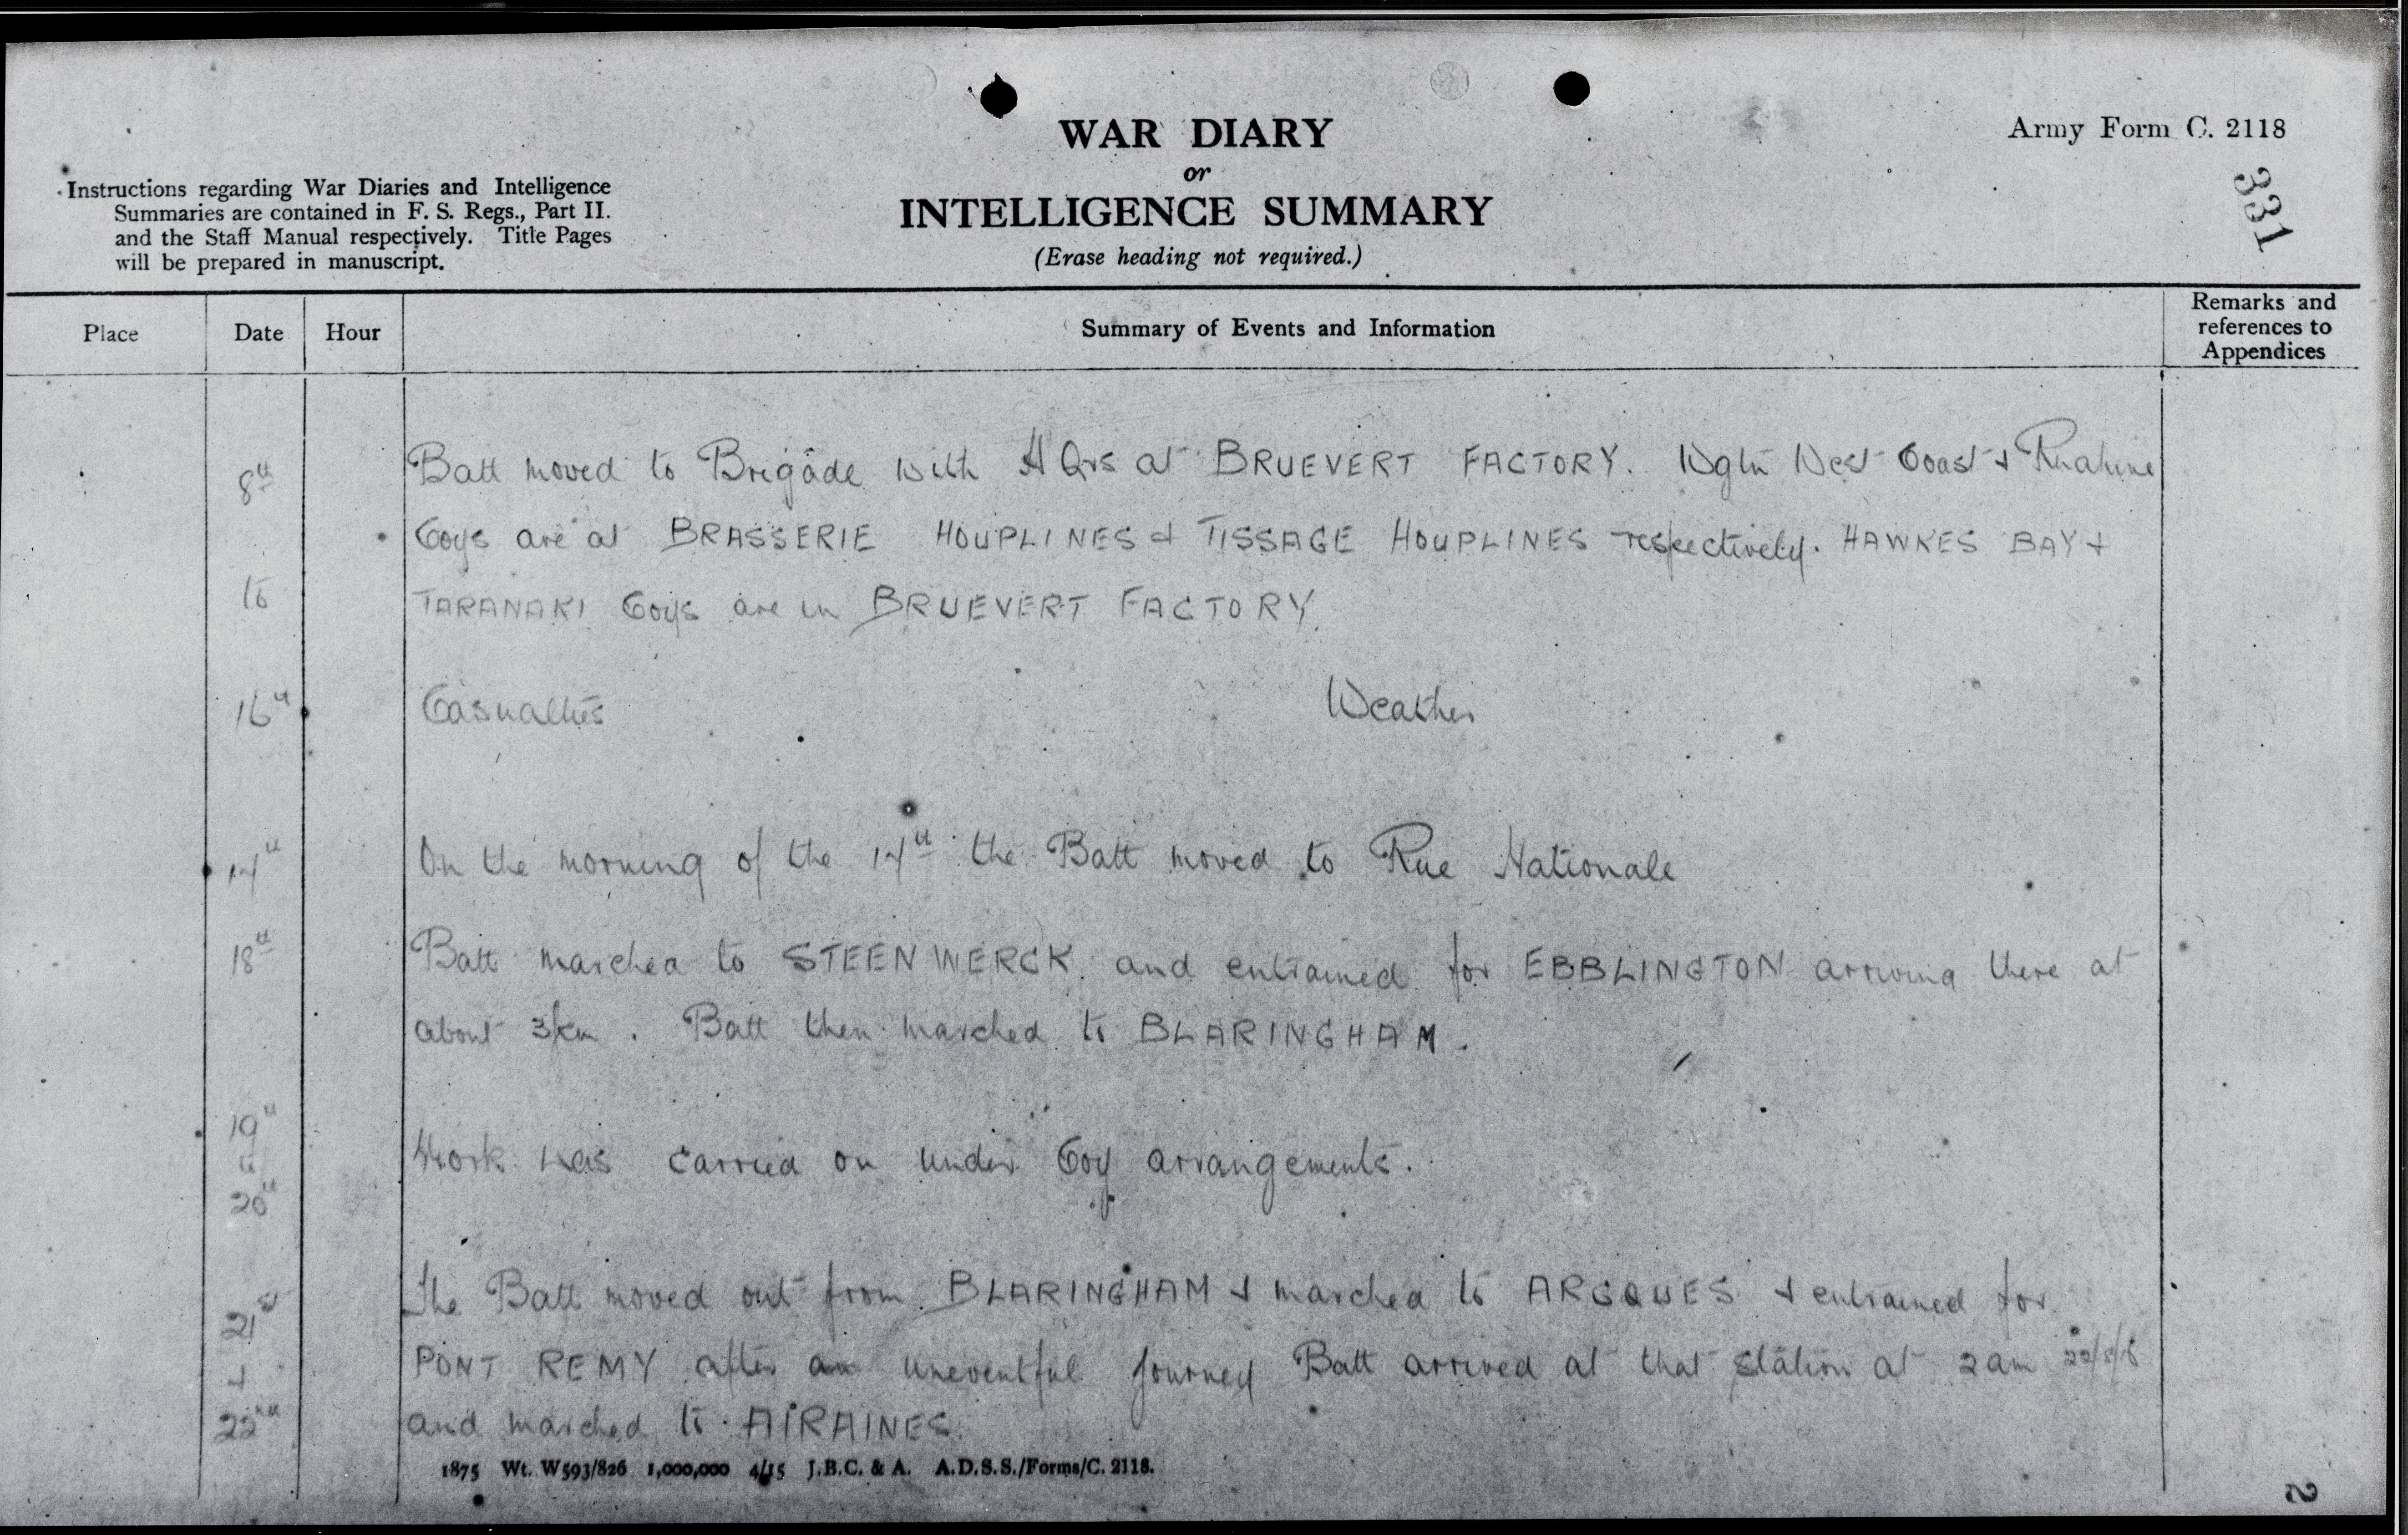 WAR DIARY
or
INTELLIGENCE SUMMARY
(Erase heading not required.)
Army Form C. 2118
331
Instructions regarding War Diaries and Intelligence
Summaries are contained in F. S. Regs., Part II.
and the Staff Manual respectively. Title Pages
will be prepared in manuscript.
Place Date Hour Summary of Events and Information Remarks and references to Appendices
8th Batt moved to Brigade with HQrs at BRUEVERT FACTORY. Wgtn West Coast & Ruahine
Coys are at BRASSERIE HOUPLINES & TISSAGE HOUPLINES respectively. HAWKES BAY &
to TARANAKI Coys are in BRUEVERT FACTORY.
16th Casualties Weather
14th On the morning of the 14th the Batt moved to Rue Nationale
18th Batt marched to STEENWERCK and entrained for EBBLINGTON arriving there at
about 3pm. Batt then marched to BLARINGHAM.
19th
&
20th Work was carried on under Coy arrangements.
21st The Batt moved out from BLARINGHAM & marched to ARCQUES & entrained for
& PONT REMY after an uneventful journey Batt arrived at that station at 2am
22nd and marched to AIRAINES.
1875 Wt. W593/826 1,000,000 4/15 J.B.C. & A. A.D.S.S./Forms/C. 2118.
2